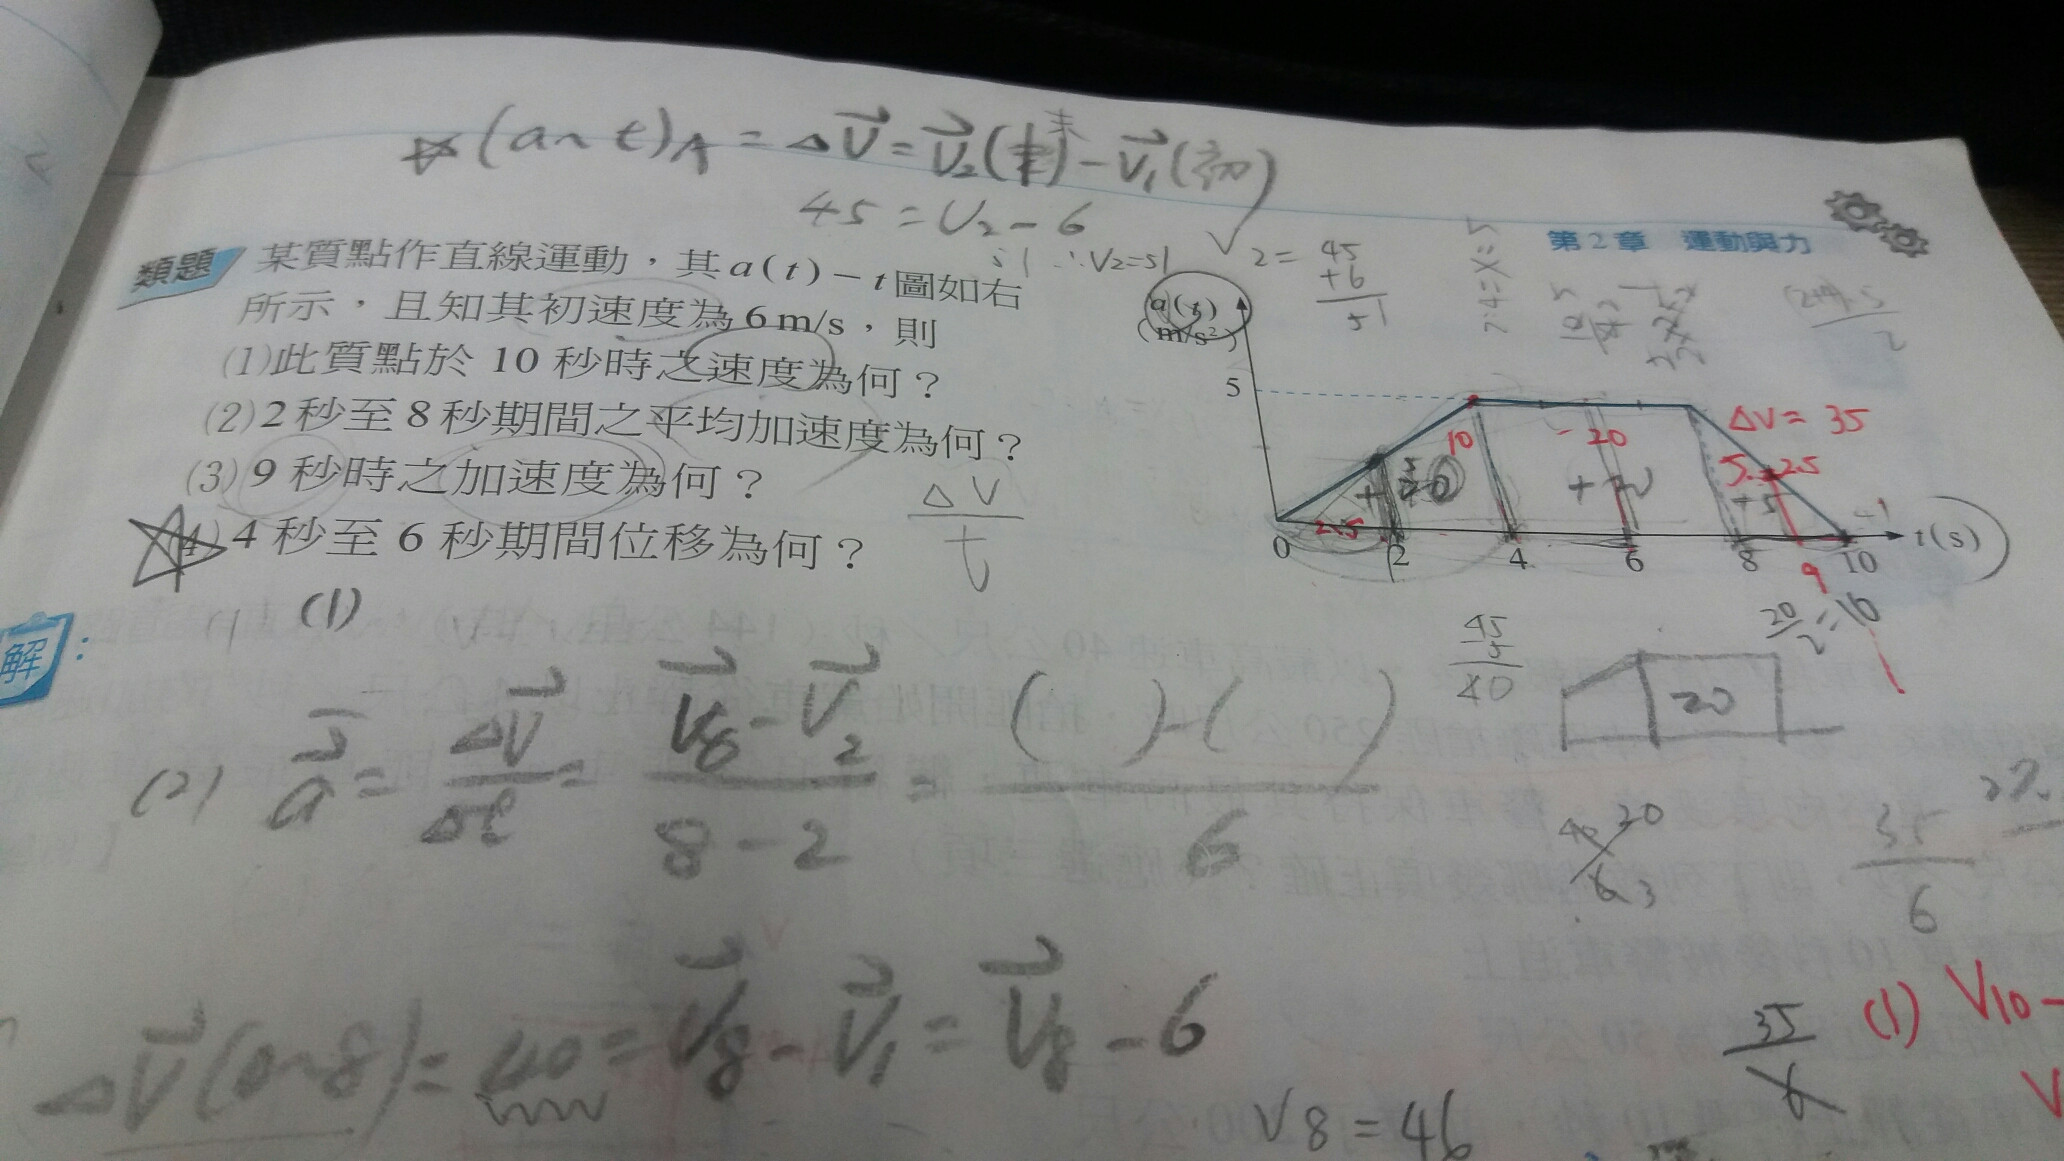 (a~t)A = ΔV = V₂(末) - V₁(初)
45 = V₂ - 6
51 ∴V₂=51
V₂ = 45
+6
51
7:4=X=5
第2章 運動與力
類題 某質點作直線運動，其a(t)－t圖如右
所示，且知其初速度為6 m/s，則
(1)此質點於 10 秒時之速度為何？
(2)2 秒至 8 秒期間之平均加速度為何？
(3)9 秒時之加速度為何？
4 秒至 6 秒期間位移為何？
ΔV
t
a(t)
(m/s²)
5
10
20
ΔV = 35
5
2.5
2.5
+5
0 2 4 6 8 9 10 t(s)
20/2=10
45
5
40
20
解：
(1)
(2) a = ΔV/Δt = V₈-V₂ / 8-2 = ( )-( ) / 6
20
3
35
6
ΔV(0~8) = 40 = V₈ - V₁ = V₈ - 6
V8 = 46
35
6
(1) V₁₀-
V